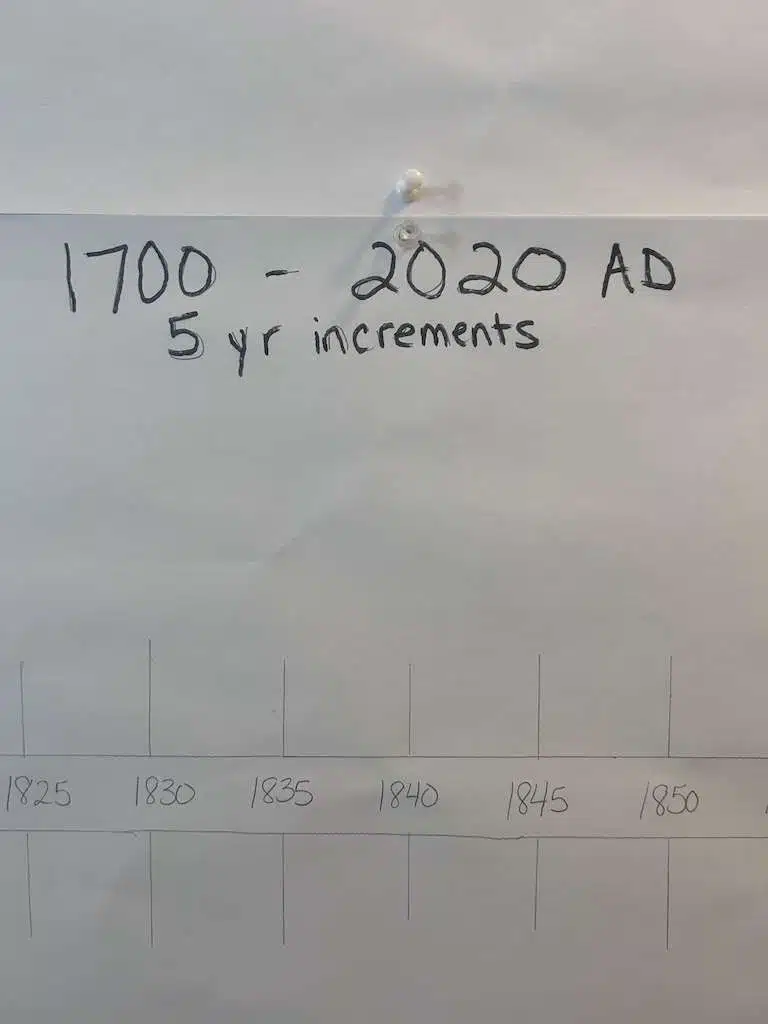 1700 - 2020 AD
5 yr increments
1825 1830 1835 1840 1845 1850